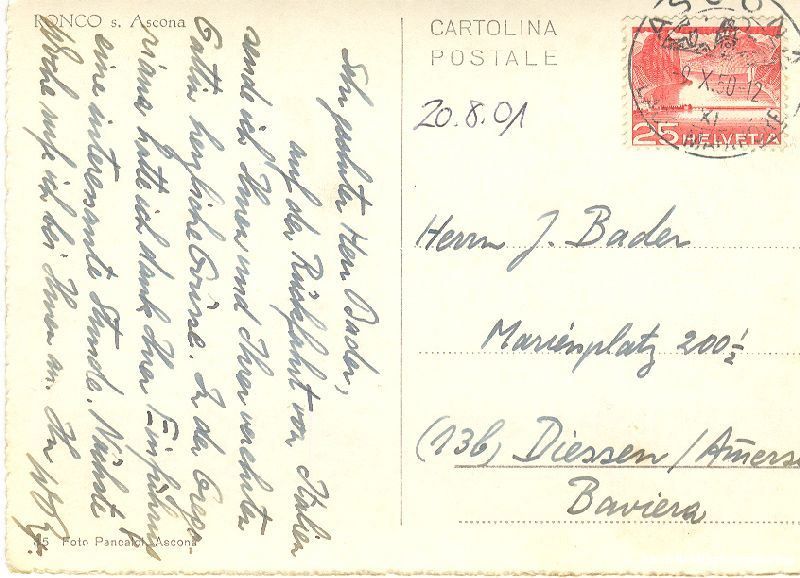 RONCO s. Ascona
Sehr geehrter Herr Bader,
auf der Rückfahrt von Italien
sende ich Ihnen und Ihrer verehrten
Gattin herzliche Grüsse. In der Grego-
riana hatte ich dank Ihrer Einführung
eine interessante Stunde. Nächste
Woche rufe ich bei Ihnen an. Ihr
85 Foto Pancaldi, Ascona
CARTOLINA
POSTALE
20.8.01
ASCONA
X.50-12
25 HELVETIA
Herrn J. Bader
Marienplatz 200½
(13b) Diessen/Ammerse
Baviera